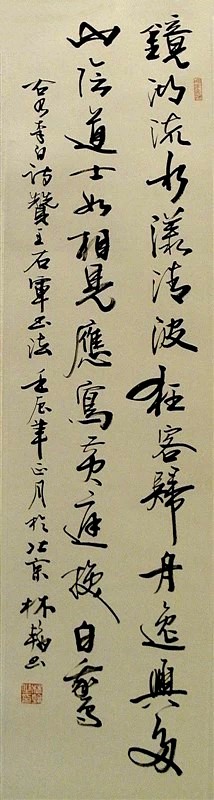 鏡湖流水漾清波狂客歸舟逸興多
山陰道士如相見應寫黃庭換白鵝
右李白詩贊王右軍書法壬辰年正月於北京林書